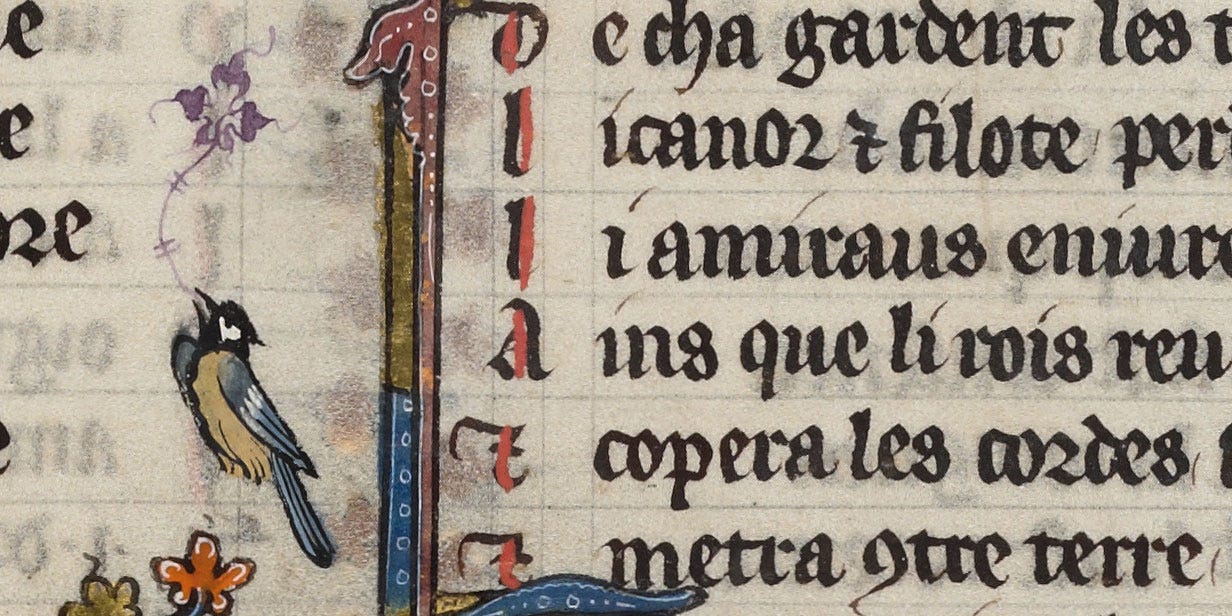 e
D e cha gardent les t
e
L icanor ⁊ filote per
ore
L i amiraus eniure
A ins que li rois reu
e
⁊ copera les cordes
⁊ metra ꝯtre terre